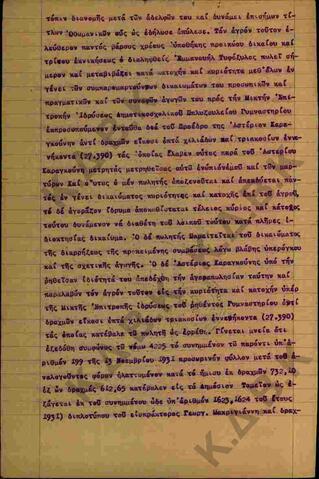 τόπιν διανομῆς μετά τῶν ἀδελφῶν του καί δυνάμει ἐπισήμων τί-
τλων Ὀθωμανικῶν οὕς ὡς ἐδήλωσε ἀπώλεσε. Τόν ἀγρόν τοῦτον ἐ-
λεύθερον παντός βάρους χρέους ὑποθήκης προικώου δικαίου καί
τρίτου ἐκνικήσεως ὁ διαληφθείς Ἐμμανουήλ Τυφόξυλος πωλεῖ σήμε-
ρον καί μεταβιβάζει κατά κατοχήν καί κυριότητα μεθ'ὅλων ἐν
γένει τῶν συμπαρομαρτούντων δικαιωμάτων του προσωπικῶν καί
πραγματικῶν καί τῶν συναφῶν ἀγωγῶν του πρός τήν Μικτήν Ἐπι-
τροπήν Ἱδρύσεως Δημοτικοσχολικοῦ
ἐκπροσωπούμενον ἐνταῦθα διά τοῦ Προέδρου της Ἀστερίου Καρα-
γκούνη ἀντί δραχμῶν εἴκοσι ἑπτά χιλιάδων καί τριακοσίων ἐνενή-
κοντα (27.390) τάς ὁποίας ἔλαβεν οὗτος παρά τοῦ Ἀστερίου
Καραγκούνη μετρητάς μετρηθείσας αὐτῷ ἐνώπιόν μου καί τῶν μαρ-
τύρων καί οὕτως ὁ μέν πωλητής ἀποξενοῦται καί ἀπεκδύεται παν-
τός ἐν γένει δικαιώματος κυριότητος καί κατοχῆς ἐπί τοῦ ἀγροῦ,
τό δέ ἀγοράζον ἵδρυμα ἀποκαθίσταται τέλειος κύριος καί κάτοχος
τούτου δυνάμενον νά διαθέτῃ τοῦ λοιποῦ τοῦτον κατά πλῆρες ἰ-
διοκτησίας δικαίωμα. Ὁ δέ πωλητής παραιτεῖται τοῦ δικαιώματος
τῆς διαρρήξεως τῆς προκειμένης συμβάσεως λόγῳ βλάβης ὑπερόγκου
καί τῆς σχετικῆς ἀγωγῆς. Ὁ δέ Ἀστέριος Καραγκούνης ὑπό τήν
ῥηθεῖσαν ἰδιότητά του ἀπεδέχθη τήν ἀγοραπωλησίαν ταύτην καί
παρέλαβεν τόν ἀγρόν τοῦτον εἰς τήν κυριότητα καί κατοχήν ὑπέρ
τῆς Μικτῆς Ἐπιτροπῆς ἱδρύσεως τοῦ ῥηθέντος Γυμναστηρίου ἀντί
δραχμῶν εἴκοσι ἑπτά χιλιάδων τριακοσίων ἐνενήκοντα (27.390)
τάς ὁποίας κατέβαλε τῷ πωλητῇ ὡς ἐρρέθη. Γίνεται μνεία ὅτι
ἐξεδόθη συμφώνως τῷ νόμῳ 4225 τό συνημμένον τῷ παρόντι ὑπ'ἀ-
ριθμόν 199 τῆς 23 Νοεμβρίου 1931 προσωρινόν φύλλον μετά τοῦ ἀ-
ναλογοῦντος φόρου ἠλαττωμένου κατά τό ἥμισυ ἐκ δραχμῶν 732,10
ἐξ ὧν δραχμάς 612,65 κατέβαλεν εἰς τό Δημόσιον Ταμεῖον ὡς ἐ-
ξάγεται ἐκ τοῦ συνημμένου ὧδε ὑπ'ἀριθμόν 1623,1624 τοῦ ἔτους
1931) διπλοτύπου τοῦ εἰσπράκτορος Γεωργ. Μακριγιάννη καί δραχ-